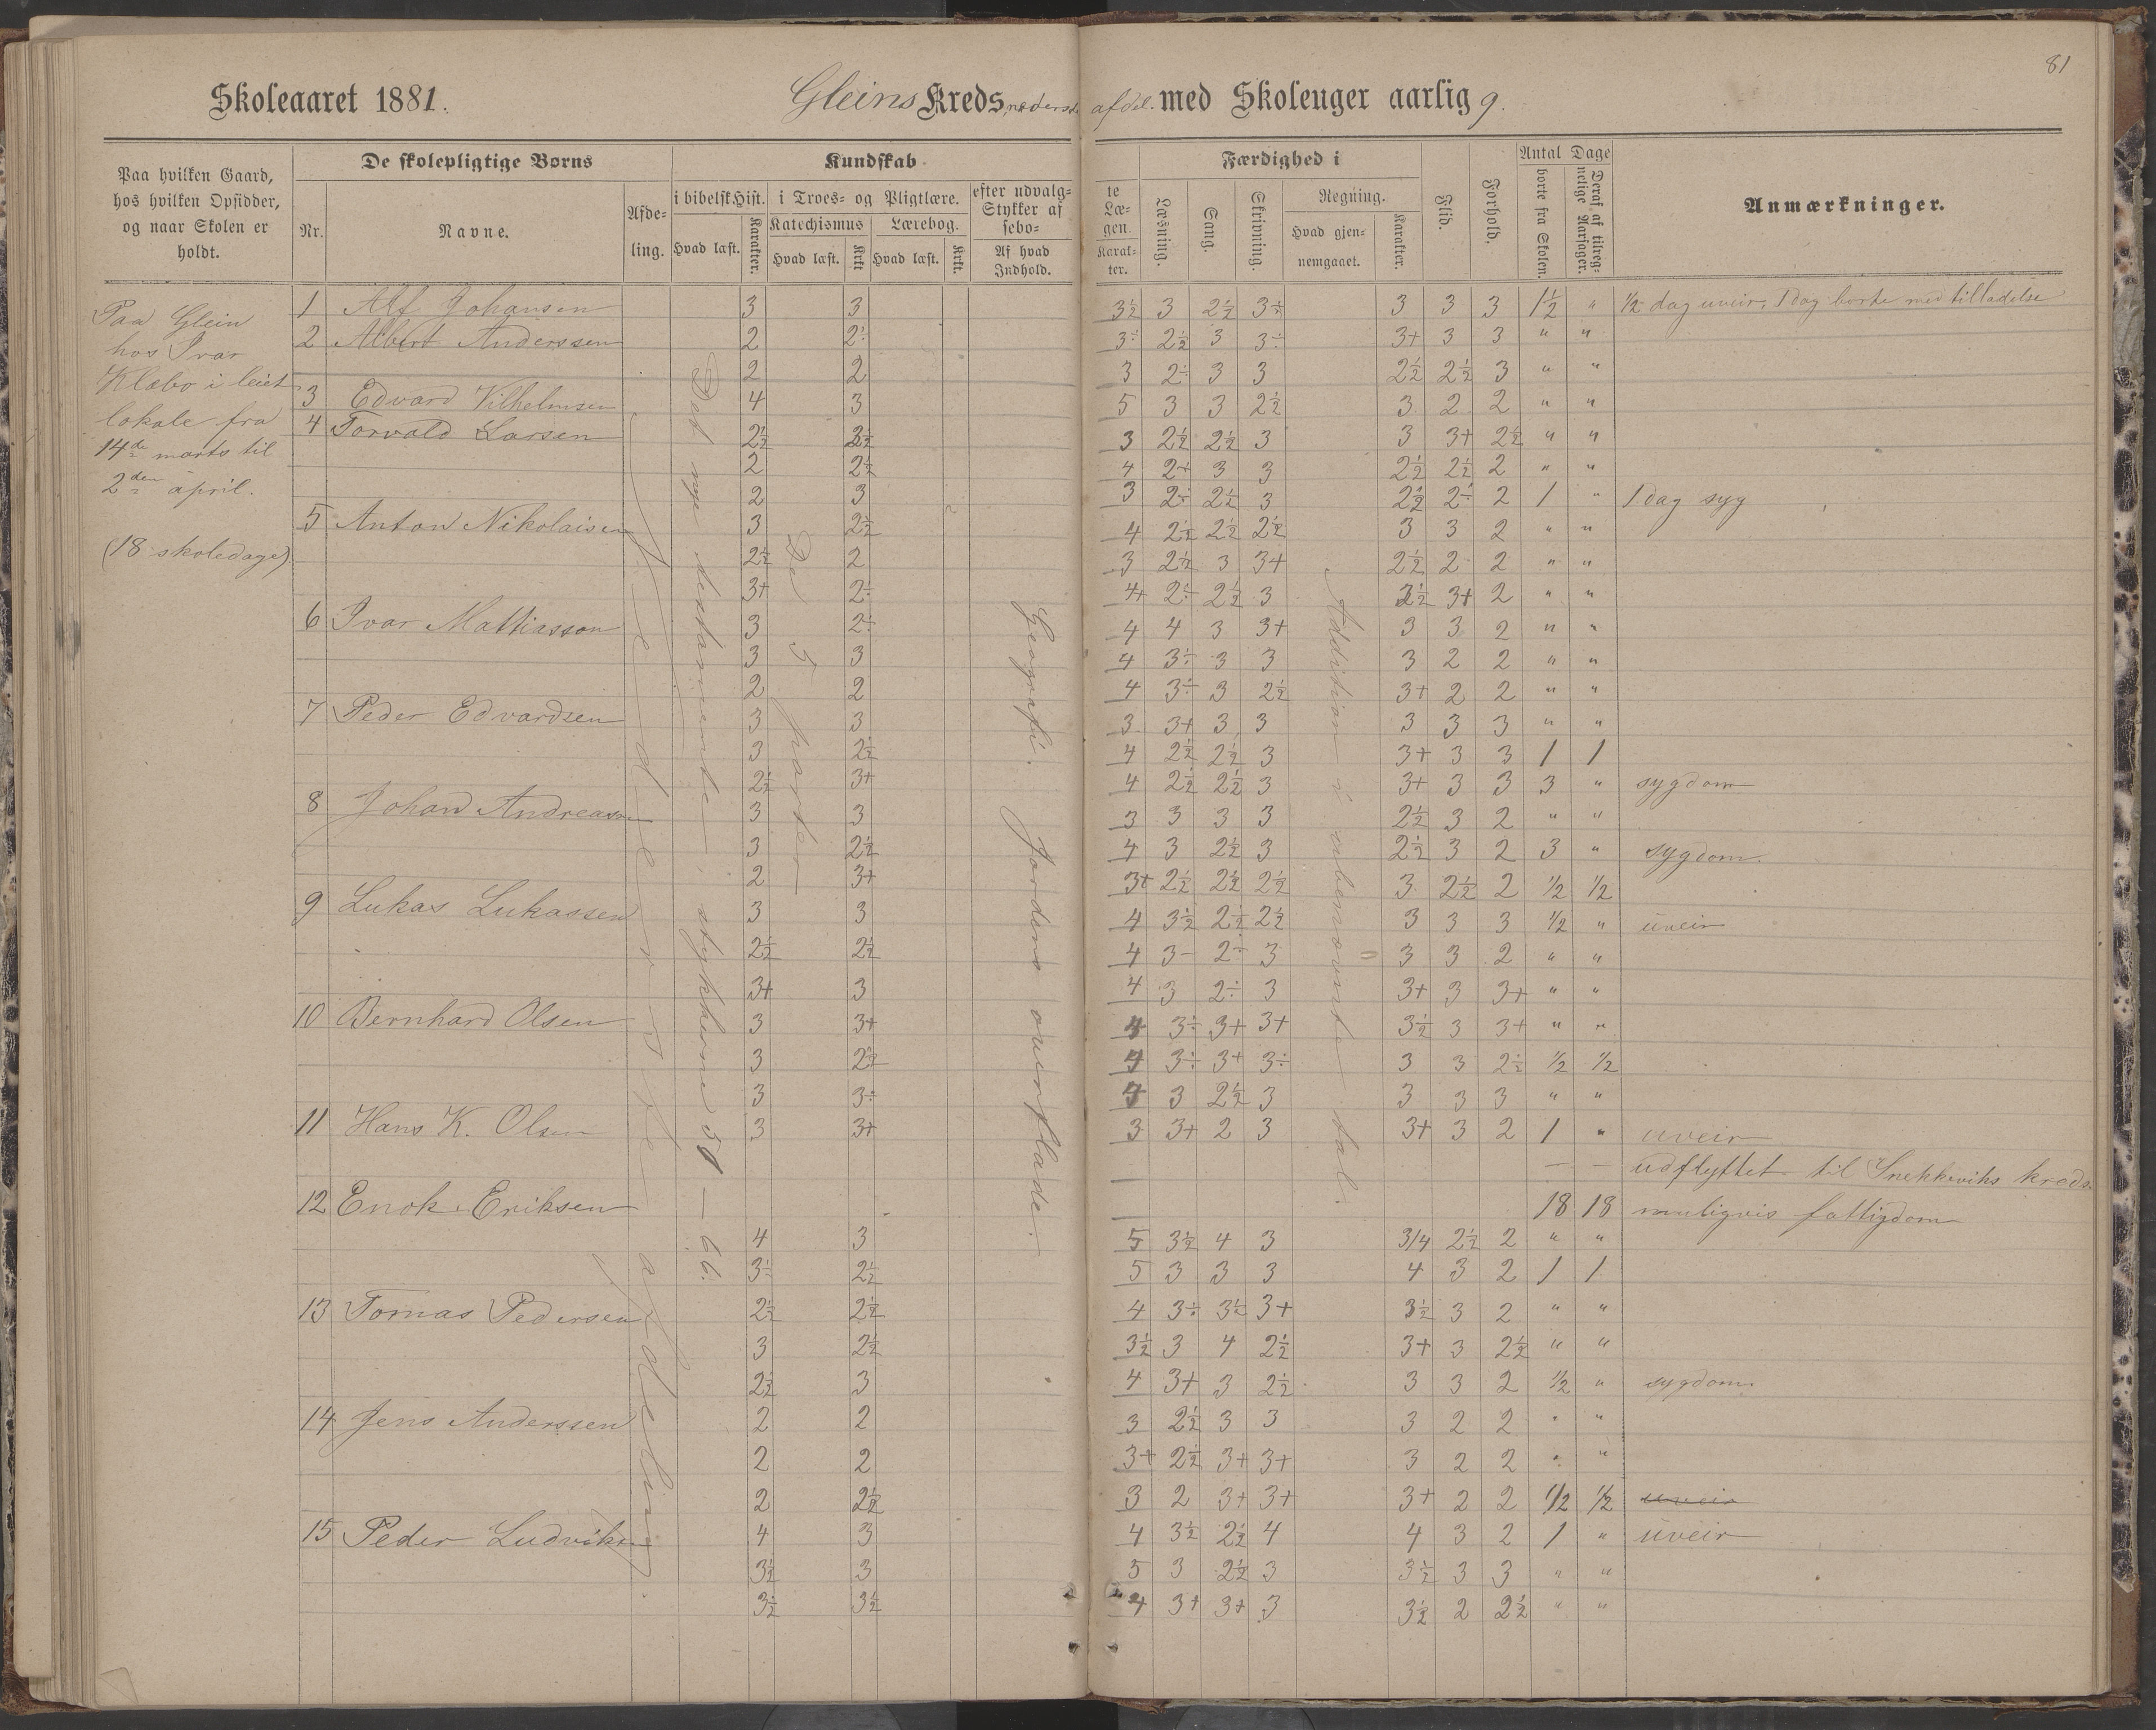 81
Skoleaaret 1881.
Gleins Kreds, nederste afdel. med Skoleuger aarlig 9.
Paa hvilken Gaard, hos hvilken Opsidder, og naar Skolen er holdt.
De skolepligtige Børns
Nr.
Navne.
Afdeling.
Kundskab
i bibelsk Hist.
Hvad læst.
Karakter.
i Troes- og Pligtlære.
Katechismus
Hvad læst.
Krkt.
Lærebog.
Hvad læst.
Krkt.
efter udvalgte Stykker af Læsebogen.
Af hvad Indhold.
Karakter.
Færdighed i
Læsning.
Sang.
Skrivning.
Regning.
Hvad gjennemgaaet.
Karakter.
Flid.
Forhold.
Antal Dage
borte fra Skolen.
Deraf af tilregnelige Aarsager.
Anmærkninger.
Paa Glein
hos Ivar
Klæbo i leiet
lokale fra
14de marts til
2den april.
(18 skoledage)
Nederste afdeling.
Det nye testamente: stykkerne 51 — 66.
De 5 parter
Geografi. Jordens overflade.
Addition i ubenævnte tal.
1 Alf Johansen 3 3 3½ 3 2½ 3÷ 3 3 3 1½ " ½ dag uveir, 1 dag borte med tilladelse
2 Albert Anderssen 2 2÷ 3÷ 2½ 3 3÷ 3+ 3 3 " "
2 2 3 2÷ 3 3 2½ 2½ 3 " "
3 Edvard Vilhelmsen 4 3 5 3 3 2½ 3 2 2 " "
4 Torvald Larsen 2½ 2½ 3 2½ 2½ 3 3 3+ 2½ " "
2 2½ 4 2÷ 3 3 2½ 2½ 2 " "
2 3 3 2÷ 2½ 3 2½ 2÷ 2 1 " 1 dag syg
5 Anton Nikolaisen 3 2½ 4 2½ 2½ 2½ 3 3 2 " "
2½ 2 3 2½ 3 3+ 2½ 2 2 " "
3+ 2÷ 4+ 2÷ 2½ 3 3½ 3+ 2 " "
6 Ivar Mathiasson 3 2÷ 4 4 3 3+ 3 3 2 " "
3 3 4 3÷ 3 3 3 2 2 " "
2 2 4 3÷ 3 2½ 3+ 2 2 " "
7 Peder Edvardsen 3 3 3 3+ 3 3 3 3 3 " "
3 2½ 4 2½ 2½ 3 3+ 3 3 1 1
2½ 3+ 4 2½ 2½ 3 3+ 3 3 3 " sygdom
8 Johan Andreasen 3 3 3 3 3 3 2½ 3 2 " "
3 2½ 4 3 2½ 3 2½ 3 2 3 " sygdom.
2 3+ 3+ 2½ 2½ 2½ 3 2½ 2 ½ ½
9 Lukas Lukassen 3 3 4 3½ 2½ 2½ 3 3 3 ½ " uveir
2½ 2½ 4 3- 2÷ 3 3 3 2 " "
3+ 3 4 3 2÷ 3 3+ 3 3+ " "
10 Bernhard Olsen 3 3+ 4 3÷ 3+ 3+ 3½ 3 3+ " "
3 2½ 4 3÷ 3+ 3÷ 3 3 2½ ½ ½
3 3÷ 4 3 2½ 3 3 3 3 " "
11 Hans K. Olsen 3 3+ 3 3+ 2 3 3+ 3 2 1 " uveir
— — udflyttet til Snekkeviks kreds.
12 Enok Eriksen 18 18 muligvis fattigdom
4 3 5 3½ 4 3 3/4 2½ 2 " "
3÷ 2½ 5 3 3 3 4 3 2 1 1
13 Tomas Pedersen 2½ 2½ 4 3÷ 3½ 3+ 3½ 3 2 " "
3 2½ 3½ 3 4 2½ 3+ 3 2½ " "
2½ 3 4 3+ 3 2½ 3 3 2 ½ " sygdom.
14 Jens Anderssen 2 2 3 2½ 3 3 3 2 2 " "
2 2 3+ 2½ 3+ 3+ 3 2 2 " "
2 2½ 3 2 3+ 3+ 3+ 2 2 ½ ½ uveir
15 Peder Ludviksen 4 3 4 3½ 2½ 4 4 3 2 1 " uveir
3½ 3 5 3 2½ 3 3½ 3 3 " "
3½ 3½ 4 3+ 3+ 3 3½ 2 2½ " "